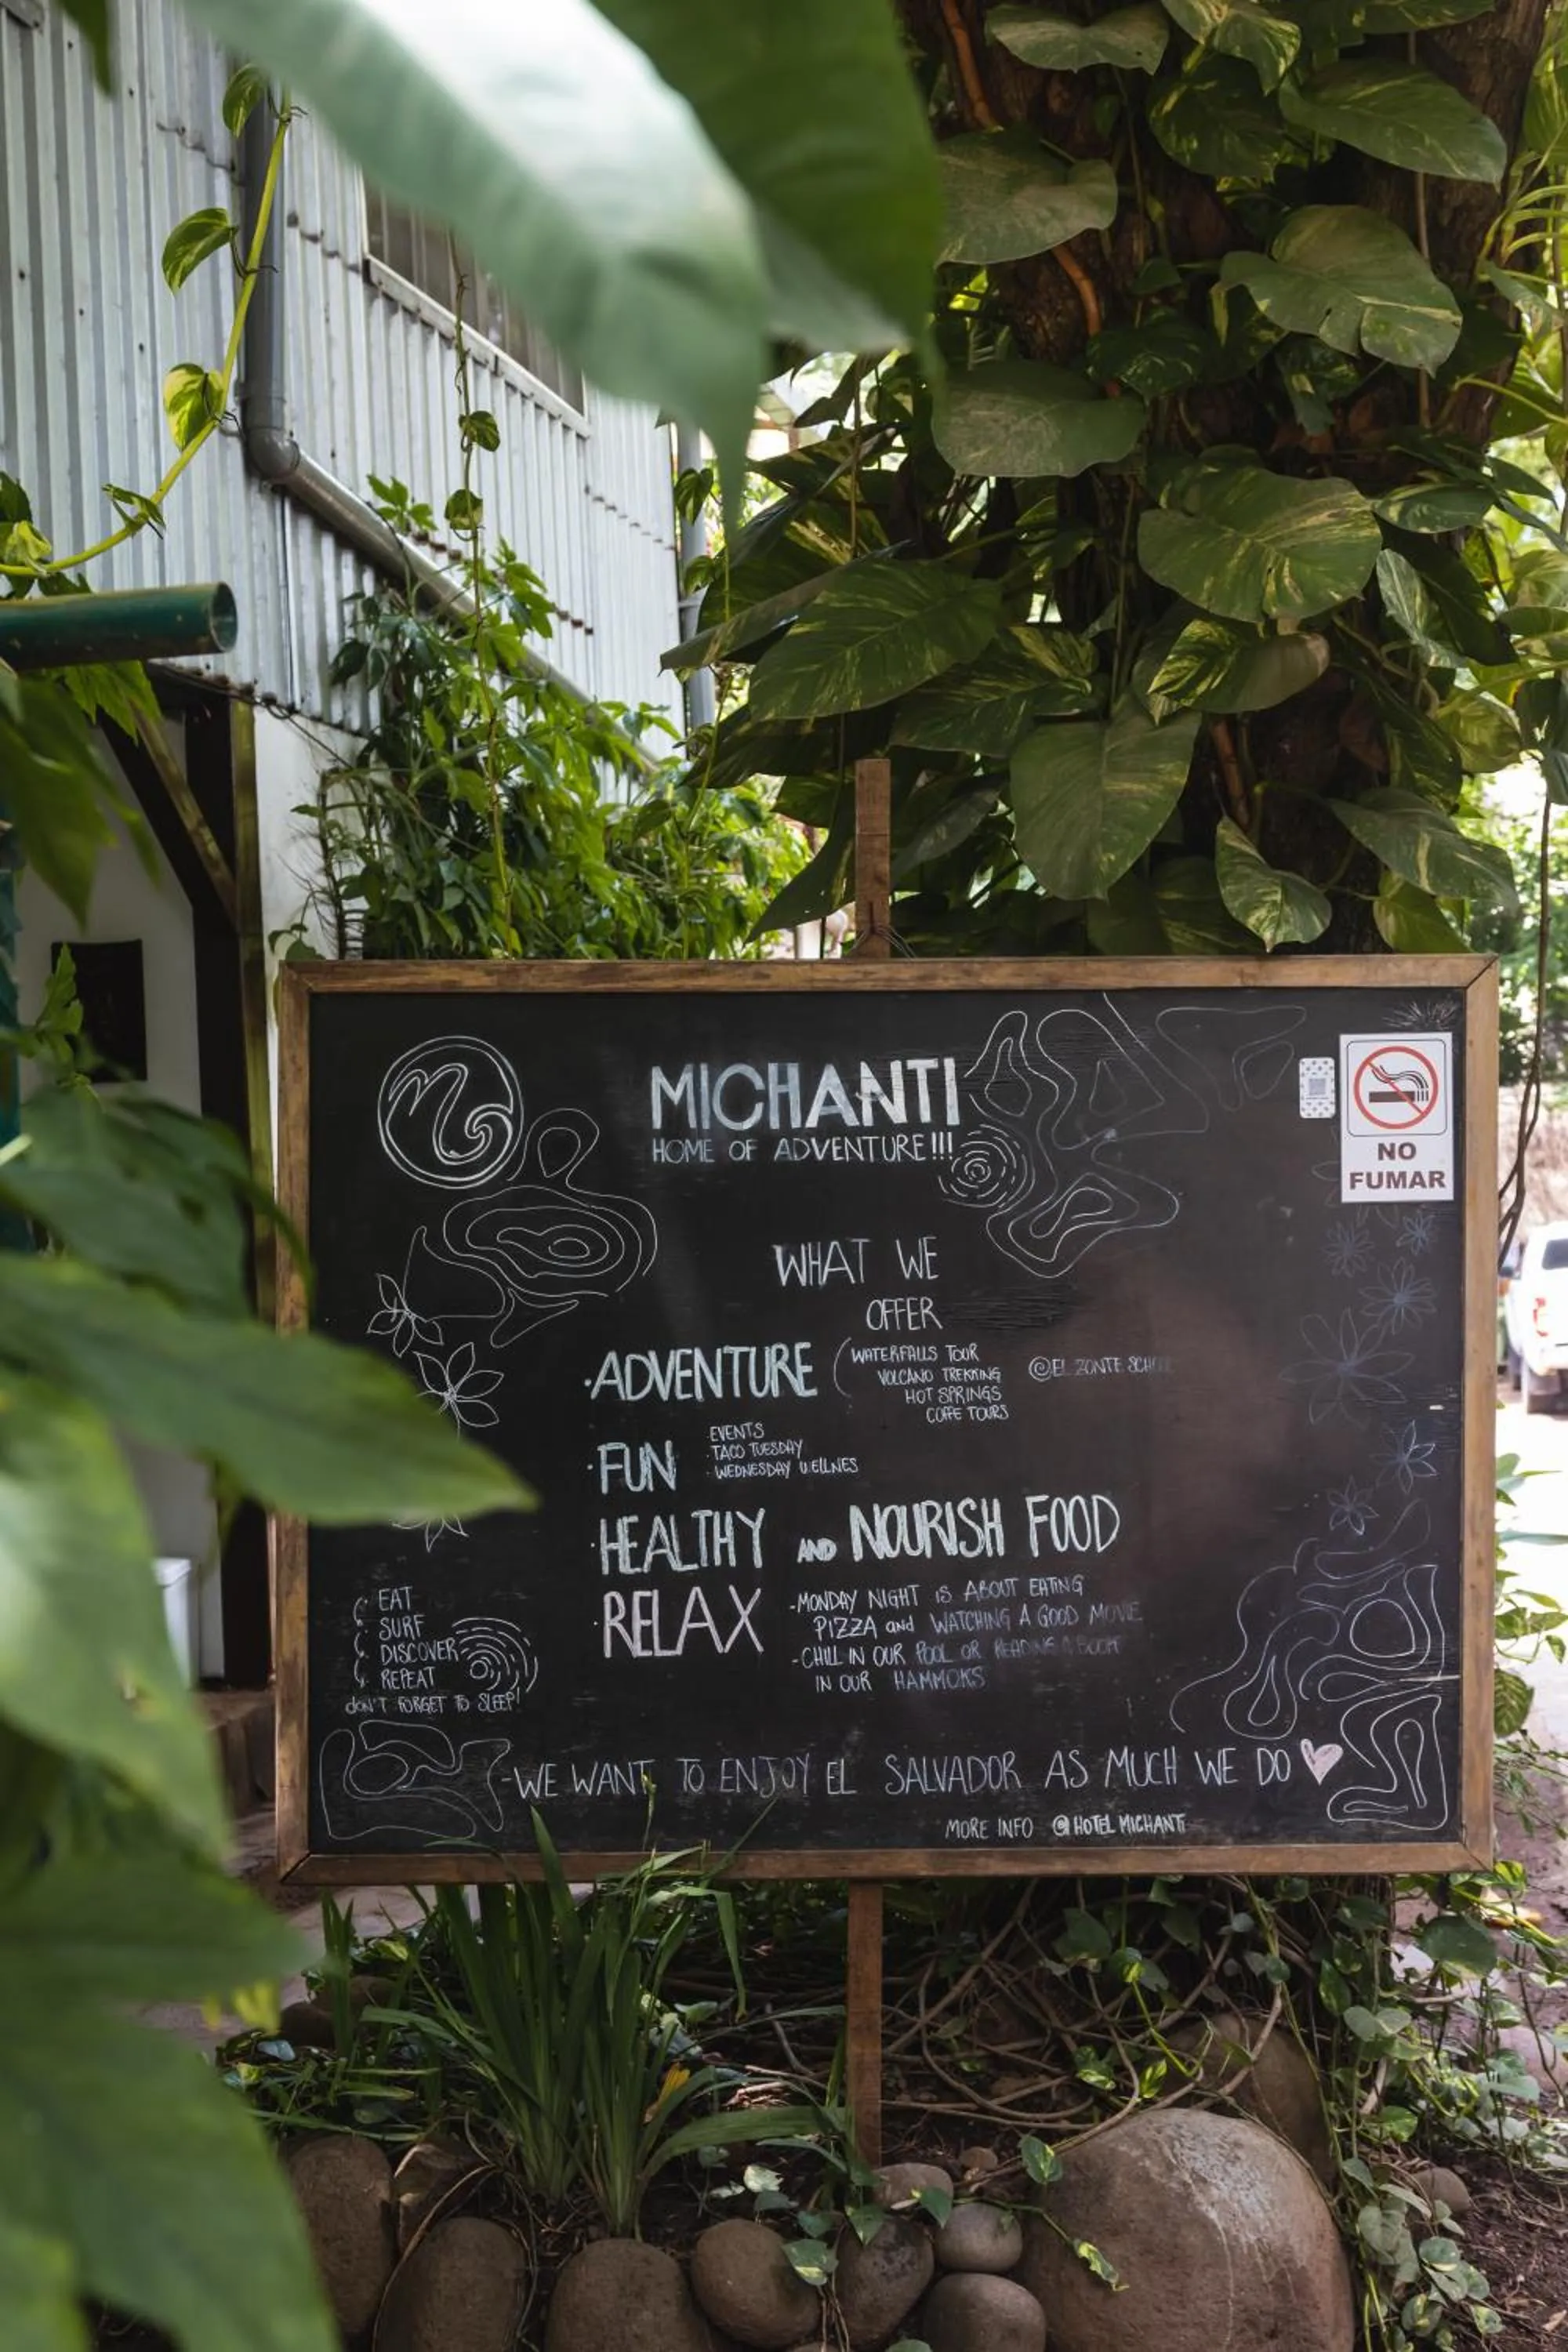 MICHANTI
HOME OF ADVENTURE!!!
NO
FUMAR
WHAT WE
OFFER
·ADVENTURE
WATERFALLS TOUR
VOLCANO TREKKING
HOT SPRINGS
COFFE TOURS
@EL ZONTE
·FUN
·EVENTS
·TACO TUESDAY
·WEDNESDAY WELLNES
·HEALTHY AND NOURISH FOOD
·RELAX
-MONDAY NIGHT IS ABOUT EATING
PIZZA and WATCHING A GOOD MOVIE
-CHILL IN OUR POOL OR READING A BOOK
IN OUR HAMMOKS
EAT
SURF
DISCOVER
REPEAT
DON'T FORGET TO SLEEP!
-WE WANT TO ENJOY EL SALVADOR AS MUCH WE DO
MORE INFO @HOTEL MICHANTI